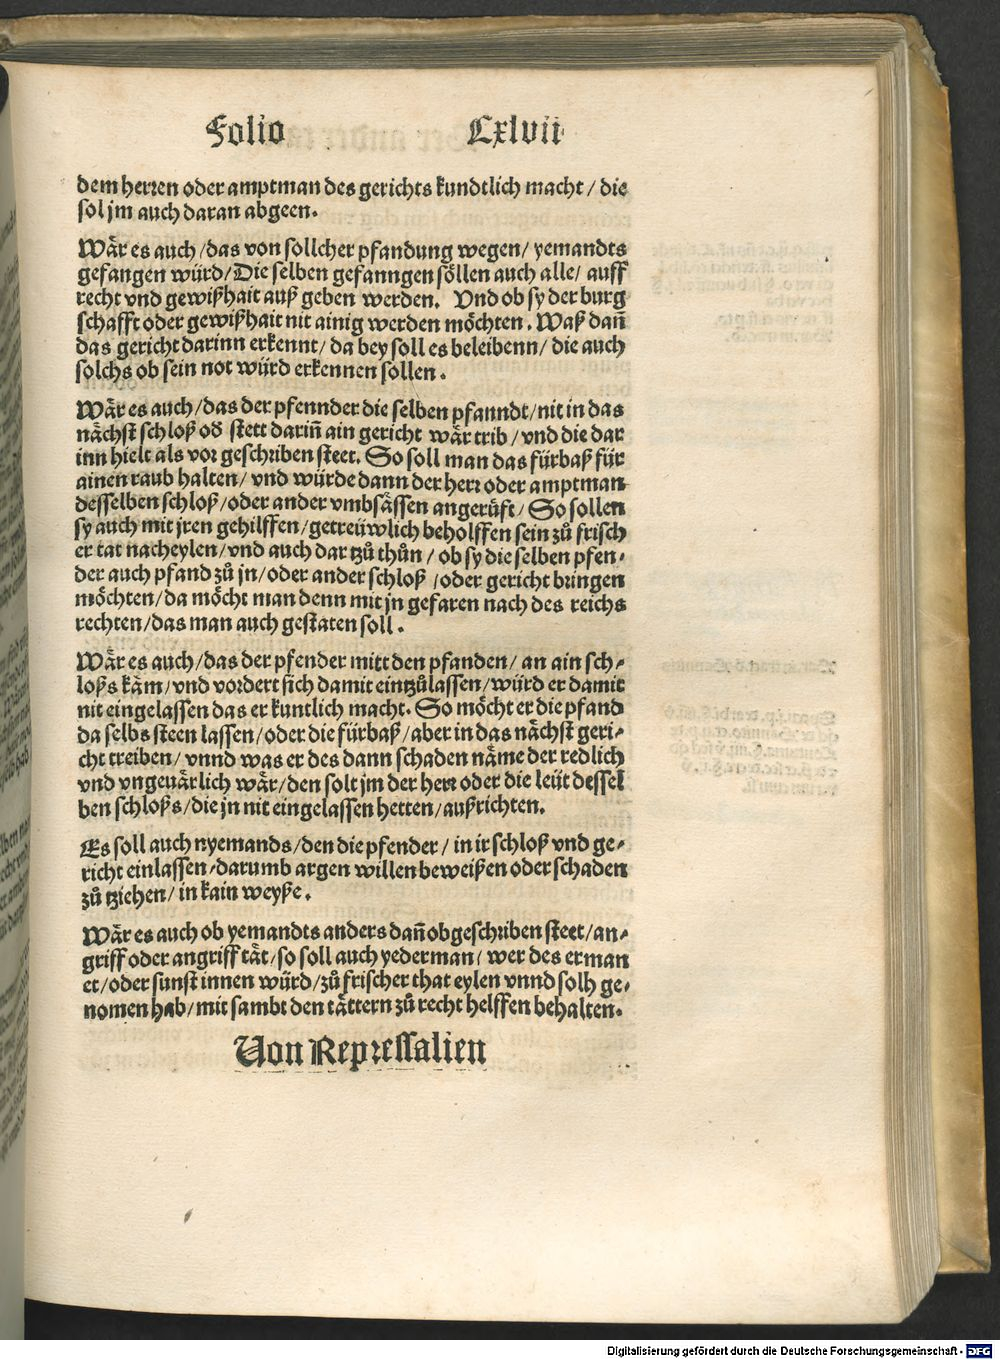 Folio Cxlvii
dem herren oder amptman des gerichts kundtlich macht / die
sol jm auch daran abgeen.
Wär es auch / das von sollcher pfandung wegen / yemandts
gefangen würd / Die selben gefanngen söllen auch alle / auff
recht vnd gewißhait auß geben werden. Vnd ob sy der burg
schafft oder gewißhait nit ainig werden möchten. Waß dañ
das gericht darinn erkennt / da bey soll es beleibenn / die auch
solchs ob sein not würd erkennen sollen.
Wär es auch / das der pfennder die selben pfanndt / nit in das
nächst schloß oď stett dariñ ain gericht wär trib / vnd die dar
inn hielt als vor geschriben steet. So soll man das fürbaß für
ainen raub halten / vnd würde dann der herr oder amptman
desselben schloß / oder ander vmbsässen angerüft / So sollen
sy auch mit jren gehilffen / getreüwlich beholffen sein zů frisch
er tat nacheylen / vnd auch dar tzů thůn / ob sy die selben pfen-
der auch pfand zů jn / oder ander schloß / oder gericht bringen
möchten / da möcht man denn mit jn gefaren nach des reichs
rechten / das man auch gestaten soll.
Wär es auch / das der pfender mitt den pfanden / an ain sch-
loßs käm / vnd vordert sich damit eintzůlassen / würd er damit
nit eingelassen das er kuntlich macht. So möcht er die pfand
da selbs steen lassen / oder die fürbaß / aber in das nächst geri-
cht treiben / vnnd was er des dann schaden näme der redlich
vnd vngeuärlich wär / den solt jm der herr oder die leüt dessel
ben schloßs / die jn nit eingelassen hetten / außrichten.
Es soll auch nyemands / den die pfender / in ir schloß vnd ge-
richt einlassen / darumb argen willen beweißen oder schaden
zů tziehen / in kain weyße.
Wär es auch ob yemandts anders dañ obgeschriben steet / an-
griff oder angriff tät / so soll auch yederman / wer des erman
et / oder sunst innen würd / zů frischer that eylen vnnd solh ge-
nomen hab / mit sambt den tättern zů recht helffen behalten.
Von Repressalien
Digitalisierung gefördert durch die Deutsche Forschungsgemeinschaft - DFG